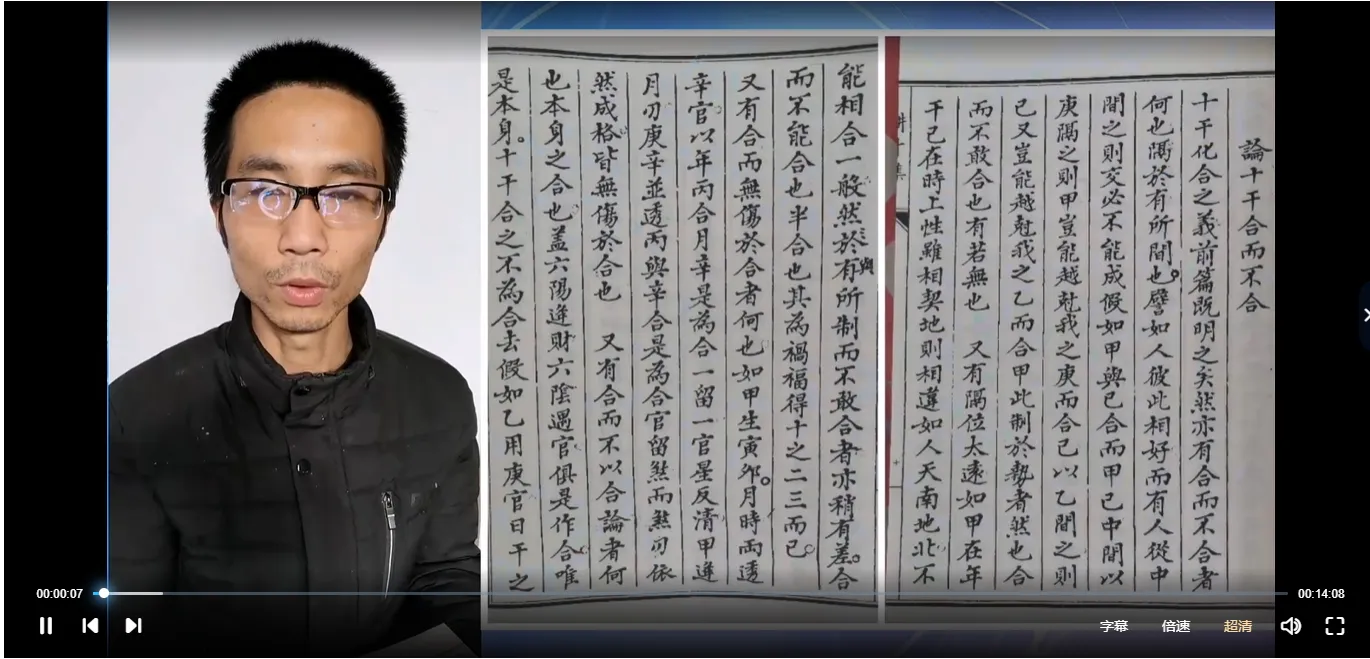 論十干合而不合
十干化合之義前篇既明之矣然亦有合而不合者
何也隔於有所間也譬如人彼此相好而有人從中
間之則交必不能成假如甲與己合而甲己中間以
庚隔之則甲豈能越尅我之庚而合己以乙間之則
己又豈能越尅我之乙而合甲此制於勢者然也合
而不敢合也有若無也 又有隔位太遠如甲在年
干己在時上性雖相契地則相違如人天南地北不
能相合一般然於與有所制而不敢合者亦稍有差。合
而不能合也半合也其為禍福得十之二三而已
又有合而無傷於合者何也如甲生寅夘。月時兩透
辛官以年丙合月辛是為合一留一官星反清甲逢
月刃庚辛並透丙與辛合是為合官留煞而煞刃依
然成格皆無傷於合也 又有合而不以合論者何
也本身之合也蓋六陽逢財六陰遇官俱是作合唯
是本身。十干合之不為合去假如乙用庚官日干之
00:00:07
00:14:08
字幕 倍速 超清